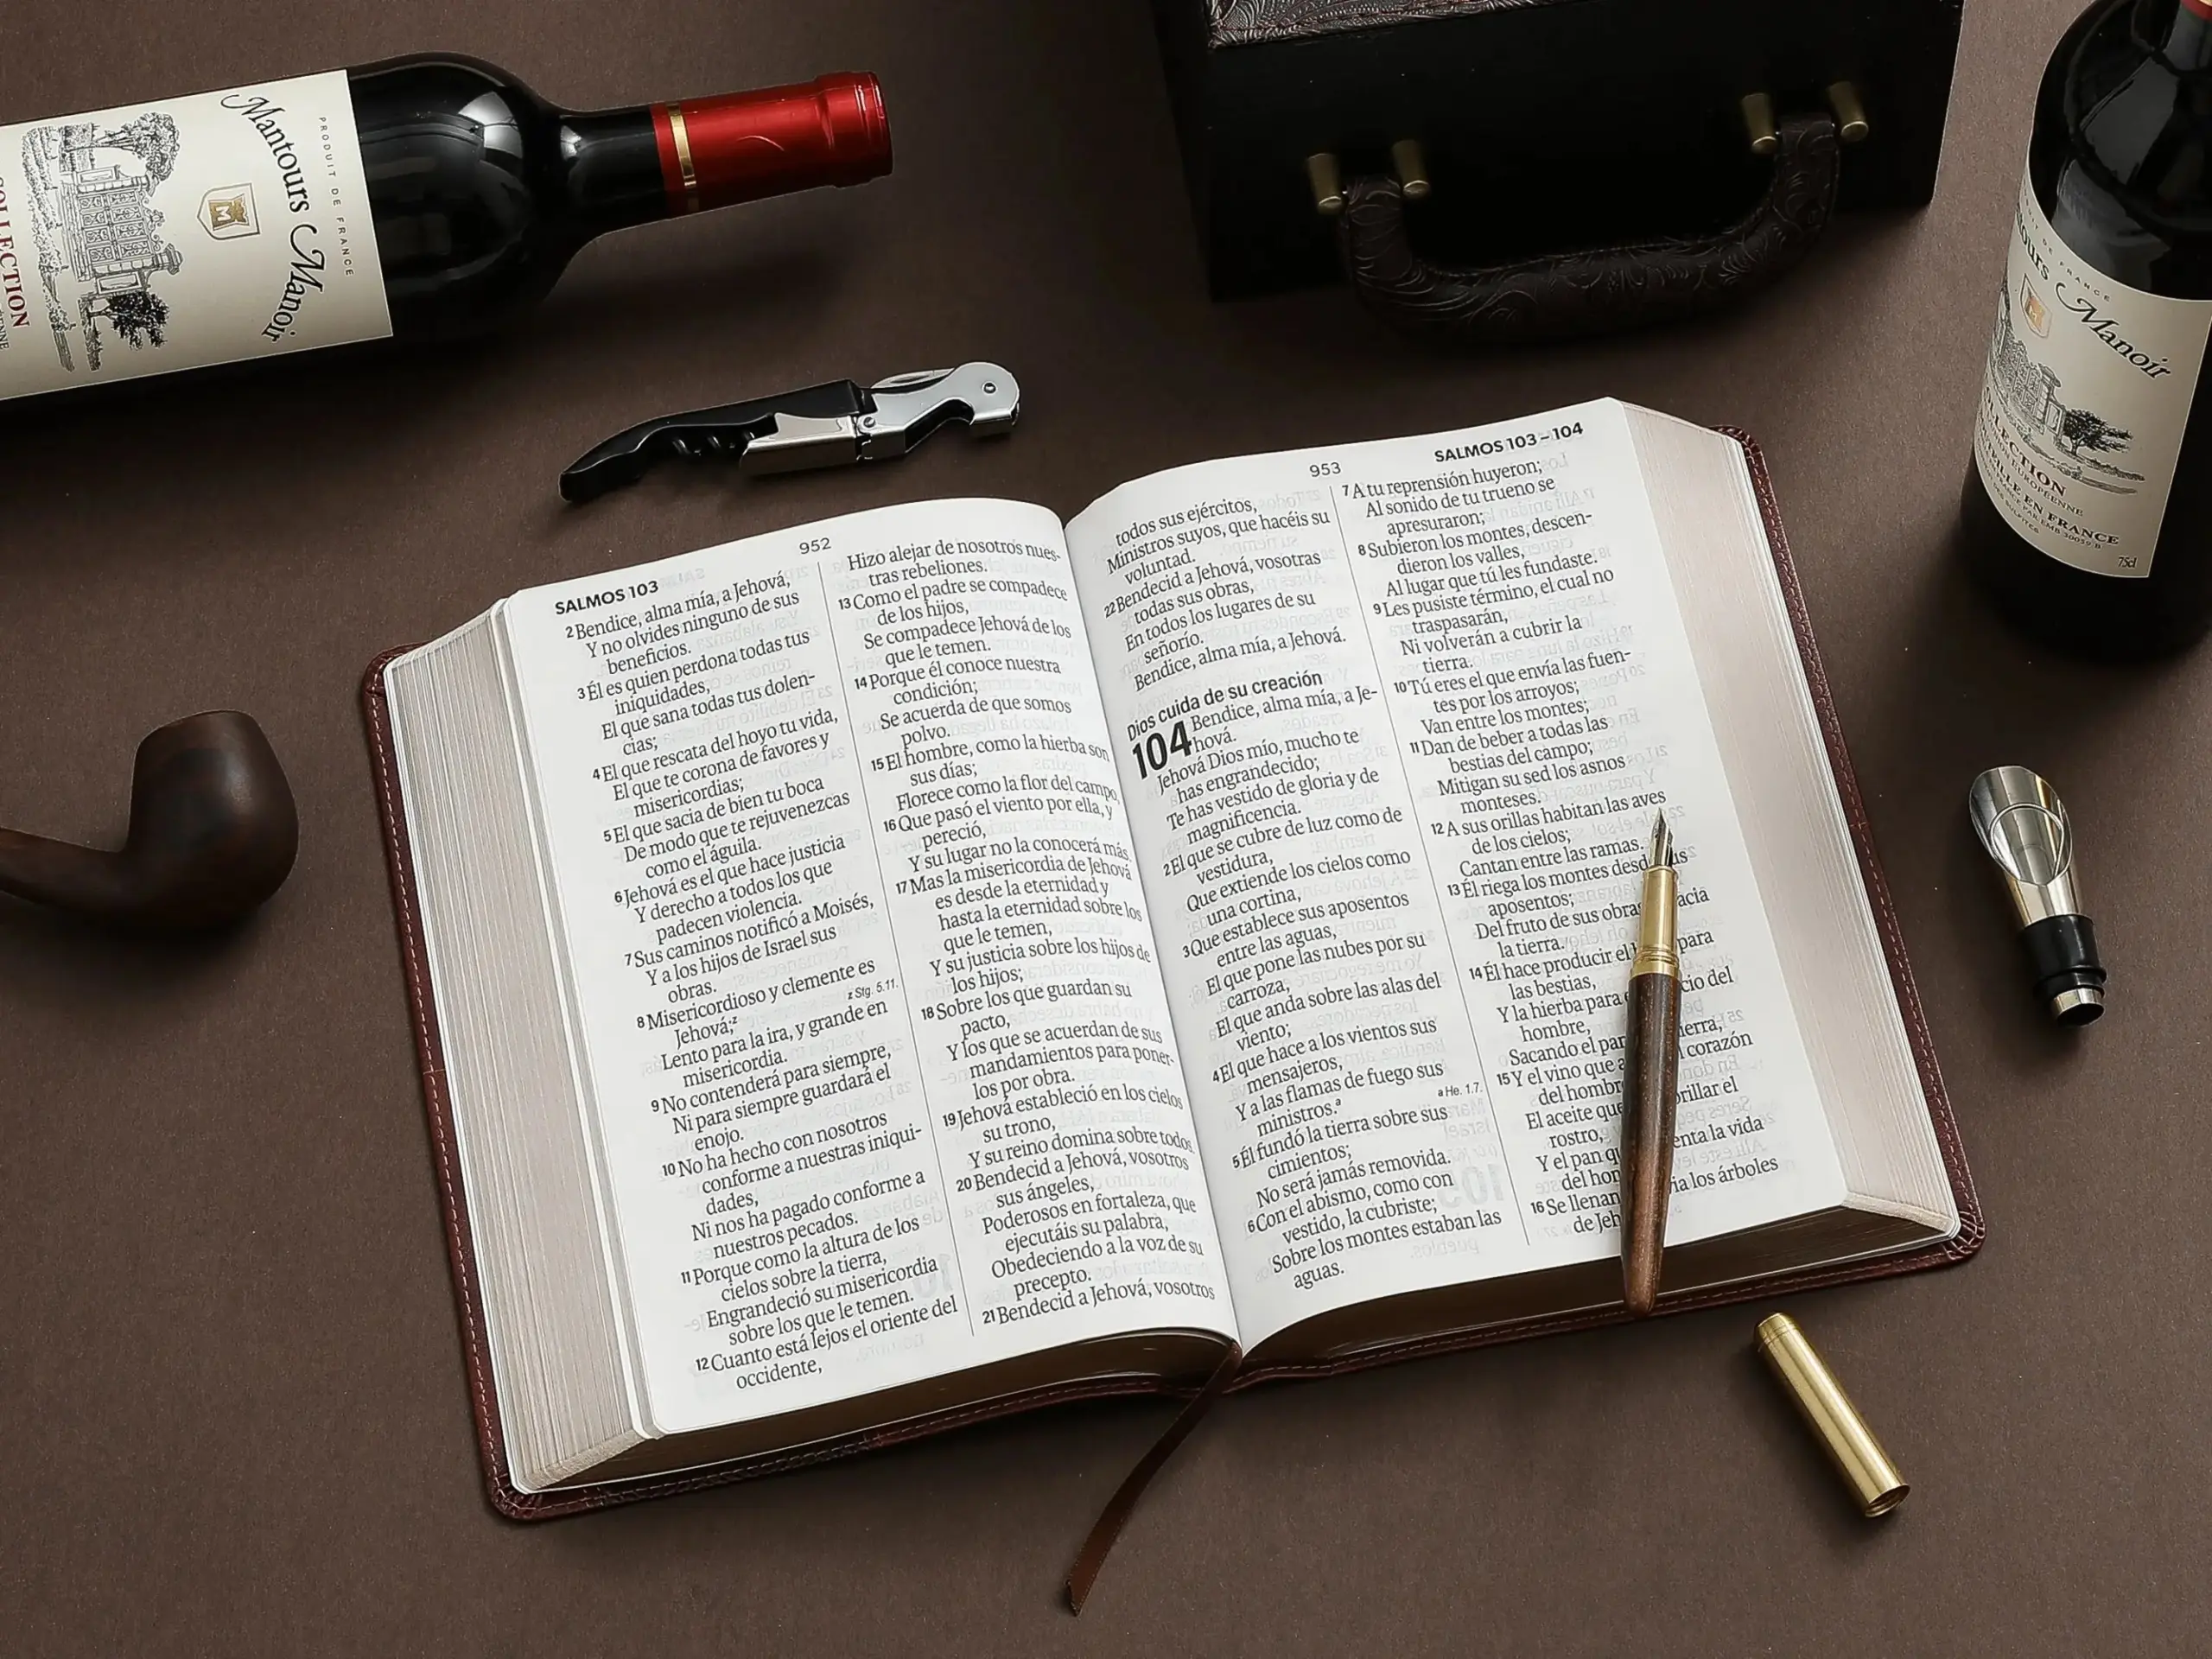 Mantours Manoir
PRODUIT DE FRANCE
M
COLLECTION
SALMOS 103
952
2 Bendice, alma mía, a Jehová,
Y no olvides ninguno de sus
beneficios.
3 Él es quien perdona todas tus
iniquidades,
El que sana todas tus dolen-
cias;
4 El que rescata del hoyo tu vida,
El que te corona de favores y
misericordias;
5 El que sacia de bien tu boca
De modo que te rejuvenezcas
como el águila.
6 Jehová es el que hace justicia
Y derecho a todos los que
padecen violencia.
7 Sus caminos notificó a Moisés,
Y a los hijos de Israel sus
obras.
8 Misericordioso y clemente es
z Stg. 5.11.
Jehová;z
Lento para la ira, y grande en
misericordia.
9 No contenderá para siempre,
Ni para siempre guardará el
enojo.
10 No ha hecho con nosotros
conforme a nuestras iniqui-
dades,
Ni nos ha pagado conforme a
nuestros pecados.
11 Porque como la altura de los
cielos sobre la tierra,
Engrandeció su misericordia
sobre los que le temen.
12 Cuanto está lejos el oriente del
occidente,
Hizo alejar de nosotros nues-
tras rebeliones.
13 Como el padre se compadece
de los hijos,
Se compadece Jehová de los
que le temen.
14 Porque él conoce nuestra
condición;
Se acuerda de que somos
polvo.
15 El hombre, como la hierba son
sus días;
Florece como la flor del campo,
16 Que pasó el viento por ella, y
pereció,
Y su lugar no la conocerá más.
17 Mas la misericordia de Jehová
es desde la eternidad y
hasta la eternidad sobre los
que le temen,
Y su justicia sobre los hijos de
los hijos;
18 Sobre los que guardan su
pacto,
Y los que se acuerdan de sus
mandamientos para poner-
los por obra.
19 Jehová estableció en los cielos
su trono,
Y su reino domina sobre todos.
20 Bendecid a Jehová, vosotros
sus ángeles,
Poderosos en fortaleza, que
ejecutáis su palabra,
Obedeciendo a la voz de su
precepto.
21 Bendecid a Jehová, vosotros
953
SALMOS 103–104
todos sus ejércitos,
Ministros suyos, que hacéis su
voluntad.
22 Bendecid a Jehová, vosotras
todas sus obras,
En todos los lugares de su
señorío.
Bendice, alma mía, a Jehová.
Dios cuida de su creación
104 Bendice, alma mía, a Je-
hová.
Jehová Dios mío, mucho te
has engrandecido;
Te has vestido de gloria y de
magnificencia.
2 El que se cubre de luz como de
vestidura,
Que extiende los cielos como
una cortina,
3 Que establece sus aposentos
entre las aguas,
El que pone las nubes por su
carroza,
El que anda sobre las alas del
viento;
4 El que hace a los vientos sus
mensajeros,
Y a las flamas de fuego sus
ministros.a
a He. 1.7.
5 Él fundó la tierra sobre sus
cimientos;
No será jamás removida.
6 Con el abismo, como con
vestido, la cubriste;
Sobre los montes estaban las
aguas.
7 A tu reprensión huyeron;
Al sonido de tu trueno se
apresuraron;
8 Subieron los montes, descen-
dieron los valles,
Al lugar que tú les fundaste.
9 Les pusiste término, el cual no
traspasarán,
Ni volverán a cubrir la
tierra.
10 Tú eres el que envía las fuen-
tes por los arroyos;
Van entre los montes;
11 Dan de beber a todas las
bestias del campo;
Mitigan su sed los asnos
monteses.
12 A sus orillas habitan las aves
de los cielos;
Cantan entre las ramas.
13 Él riega los montes desde
aposentos;
Del fruto de sus obras
la tierra.
14 Él hace producir el para
las bestias,
Y la hierba para del
hombre,
Sacando el
15 Y el vino que corazón
del
El aceite que
rostro,
Y el pan la vida
del
16 Se llenan los árboles
de
Manoir
FRANCE
EN FRANCE
75cl